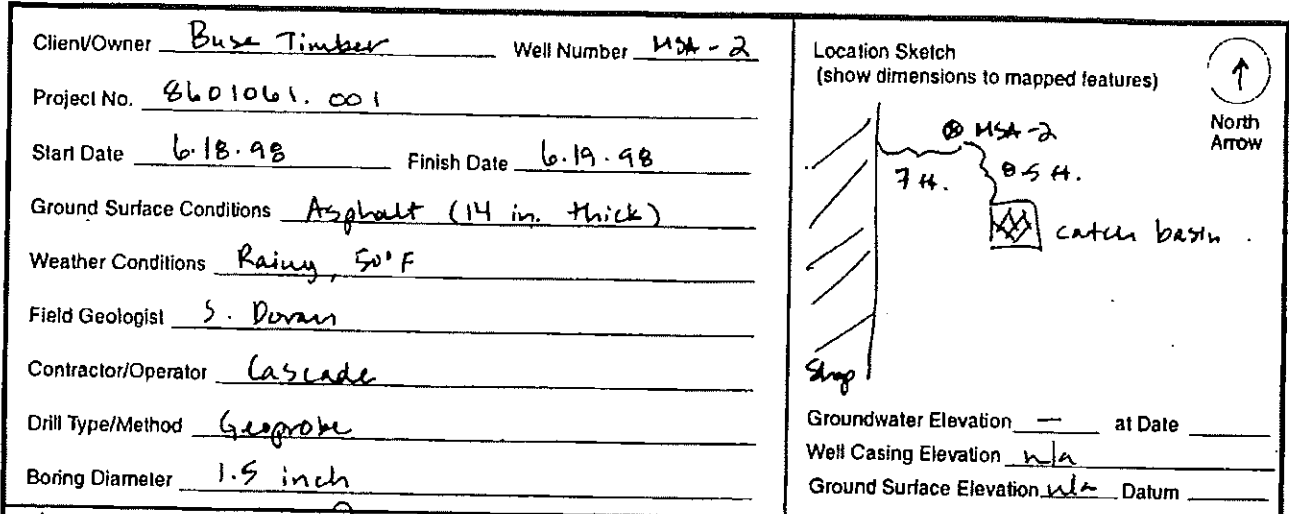 Client/Owner Buse Timber Well Number MSA-2
Project No. 8601061.001
Start Date 6.18.98 Finish Date 6.19.98
Ground Surface Conditions Asphalt (14 in. thick)
Weather Conditions Rainy, 50°F
Field Geologist S. Doran
Contractor/Operator Cascade
Drill Type/Method Geoprobe
Boring Diameter 1.5 inch
Location Sketch
(show dimensions to mapped features)
North
Arrow
MSA-2
7 ft.
8.5 ft.
catch basin.
Shop
Groundwater Elevation — at Date
Well Casing Elevation n/a
Ground Surface Elevation n/a Datum